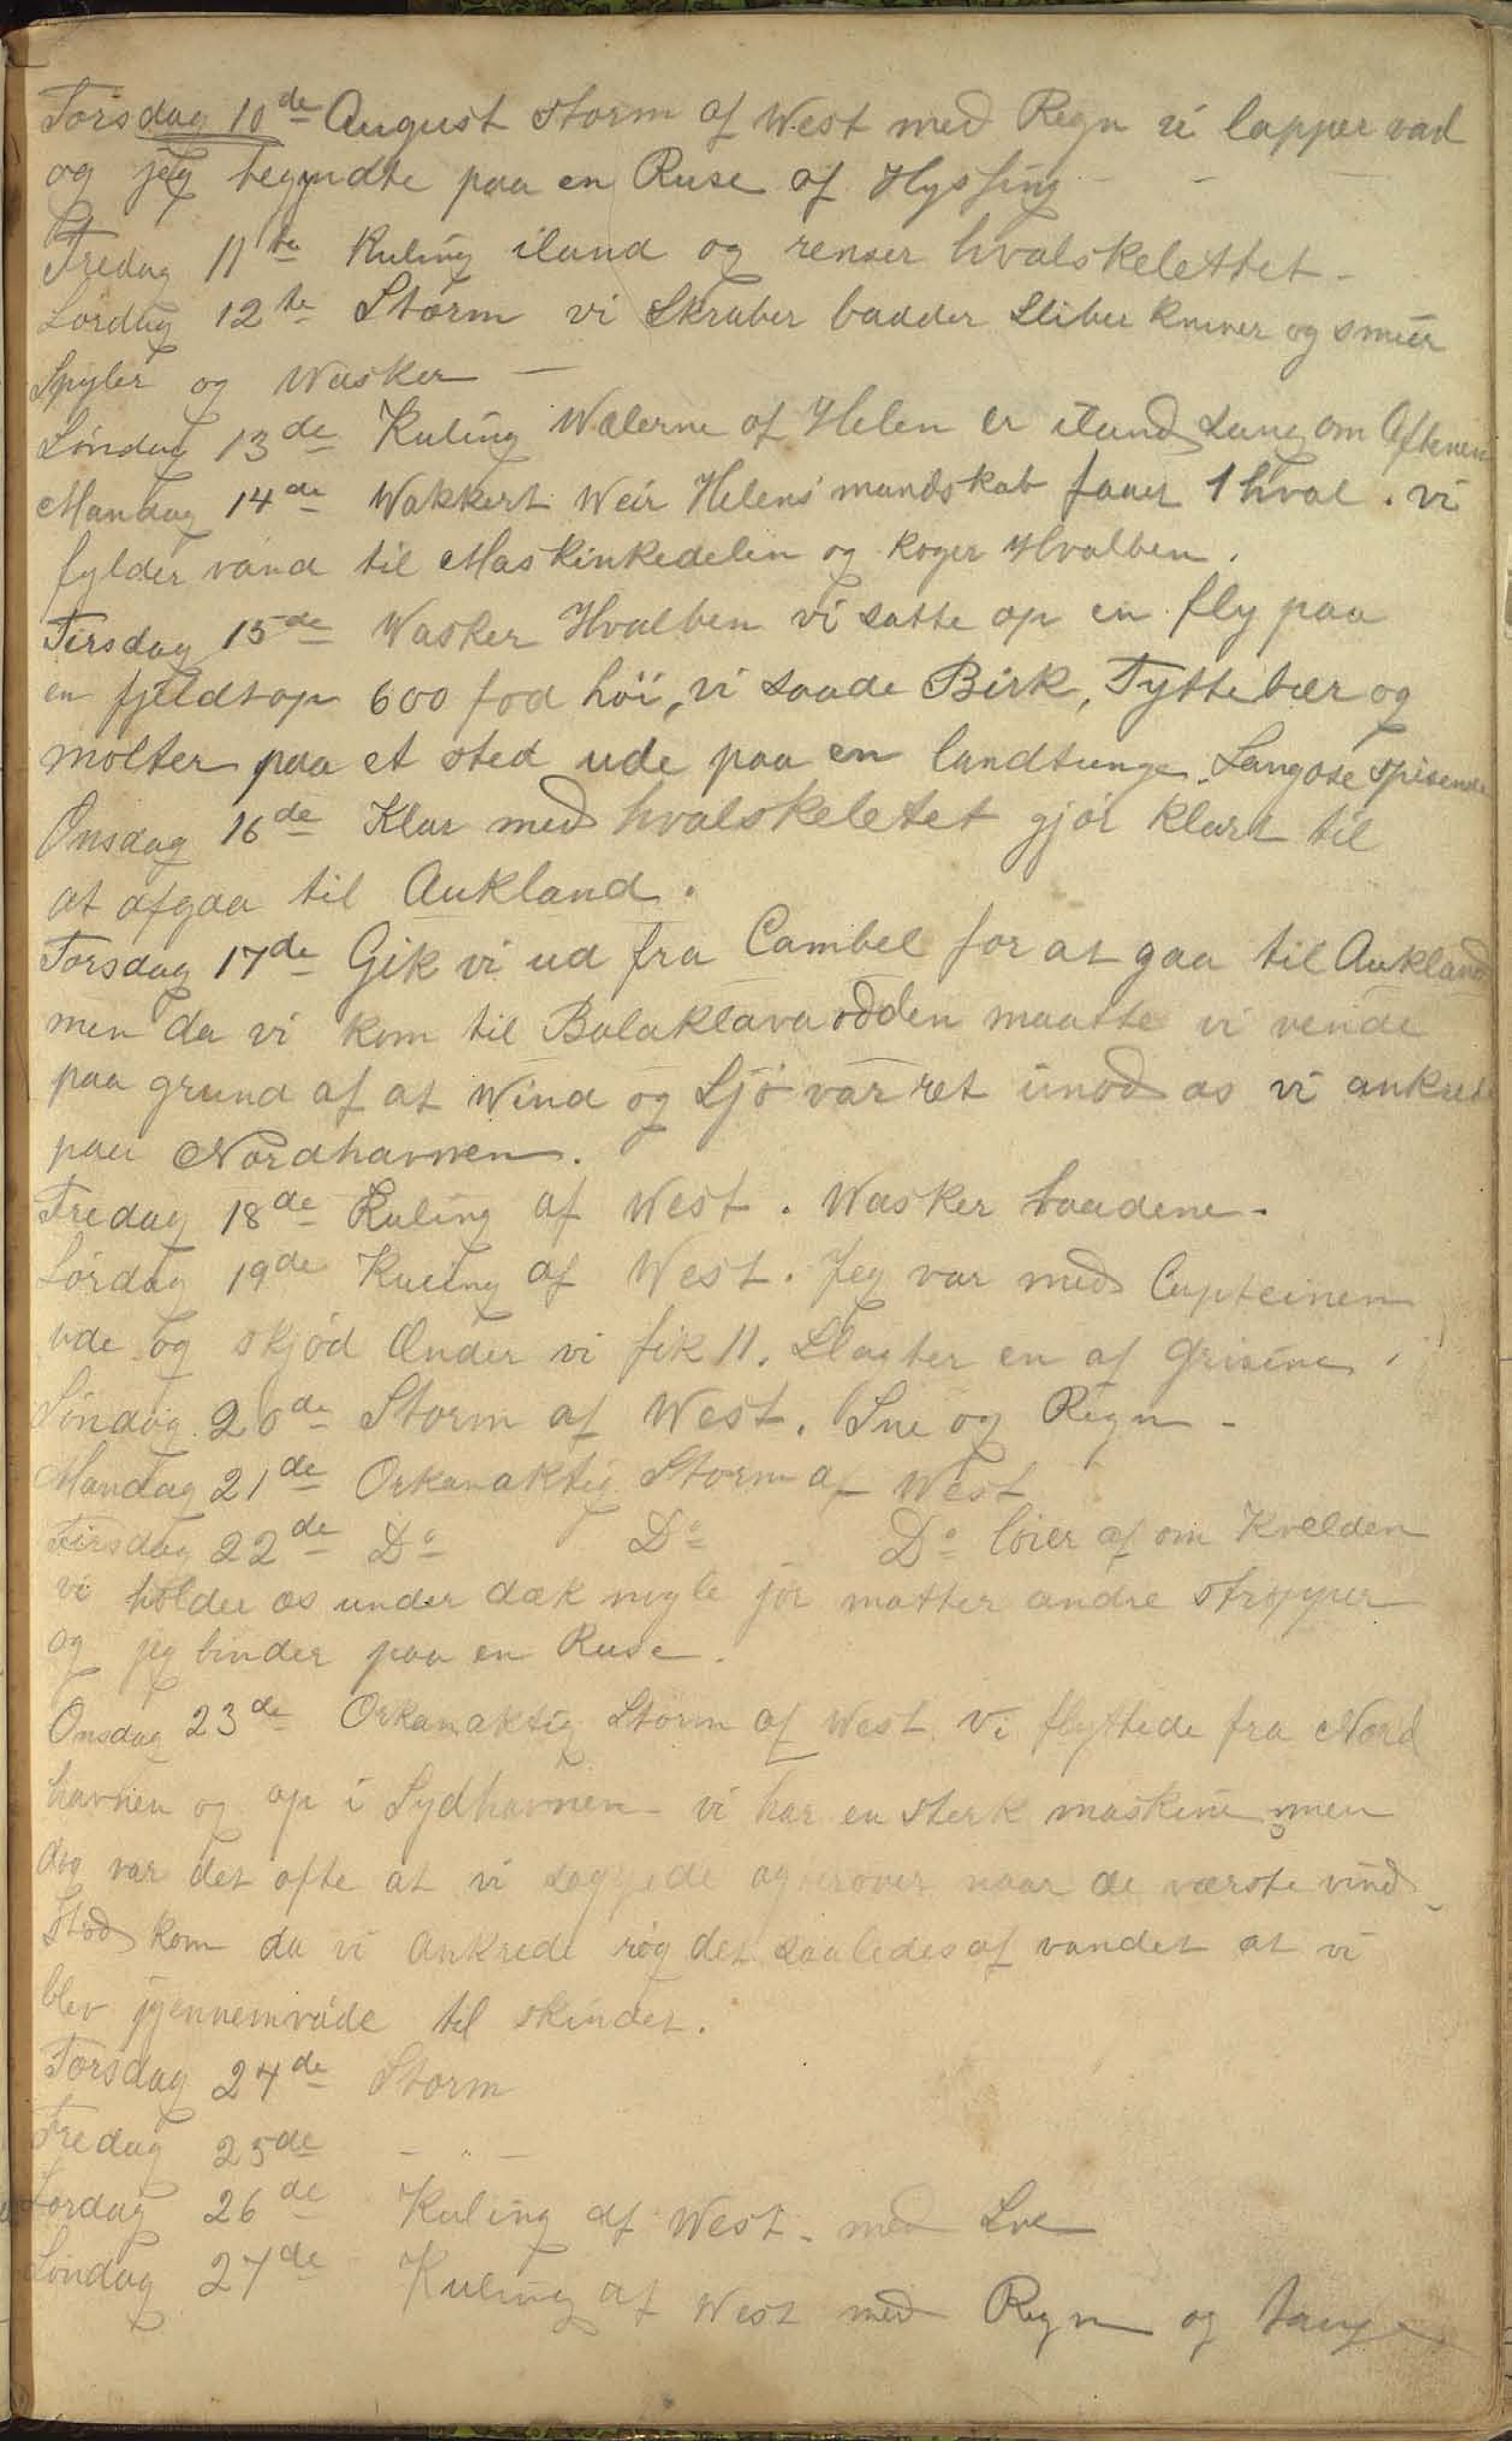 Torsdag 10de August Storm af West med Regn vi lapper vad
og jeg begyndte paa en Ruse af Hyssing
Fredag 11te Kuling iland og renser hvalskelettet -
Lørdag 12te Storm vi Skraber baader Sliber kniver og smør
Spyler og Wasker -
Søndag 13de Kuling Wælerne af Helen er iland Sang om Aftenen
Mandag 14de Wakkert Weir Helens mandskab faaer 1 hval . vi
fylder vand til Maskinkedelen og koger Hvalben .
Tirsdag 15de Wasker Hvalben vi satte op en fly paa
en fjeldtop 600 fod høi, vi saade Birk, Tyttebær og
molter paa et sted ude paa en landtunge. Langøse spisende
Onsdag 16de Klar med hvalskeletet gjør klart til
at afgaa til Aukland .
Torsdag 17de Gik vi ud fra Cambel for at gaa til Aukland
men da vi kom til Balaklavaodden maatte vi vende
paa grund af at Wind og Sjø var ret imod os vi ankrede
paa Nordhavnen .
Fredag 18de Kuling af West . Wasker baadene -
Lørdag 19de Kuling af West . Jeg var med Capteinen
ude og skjød Ænder vi fik 11. Slagter en af Grisene .
Søndag 20de Storm af West . Sne og Regn -
Mandag 21de Orkanaktig Storm af West
Tirsdag 22de Do Do Do løier af om Kvelden
vi holder os under dæk nogle jør matter andre stropper
og jeg binder paa en Ruse .
Onsdag 23de Orkanaktig Storm af West Vi flyttede fra Nord
havnen og op i Sydhavnen - vi har en sterk maskine men
dog var det ofte at vi saggede agterover naar de værste vind
Stød kom da vi Ankrede røg det saaledes af vandet at vi
blev jgennemvåde til skindet .
Torsdag 24de Storm
Fredag 25de - " -
Lørdag 26de Kuling af West - med Sne
Søndag 27de Kuling af West med Regn og